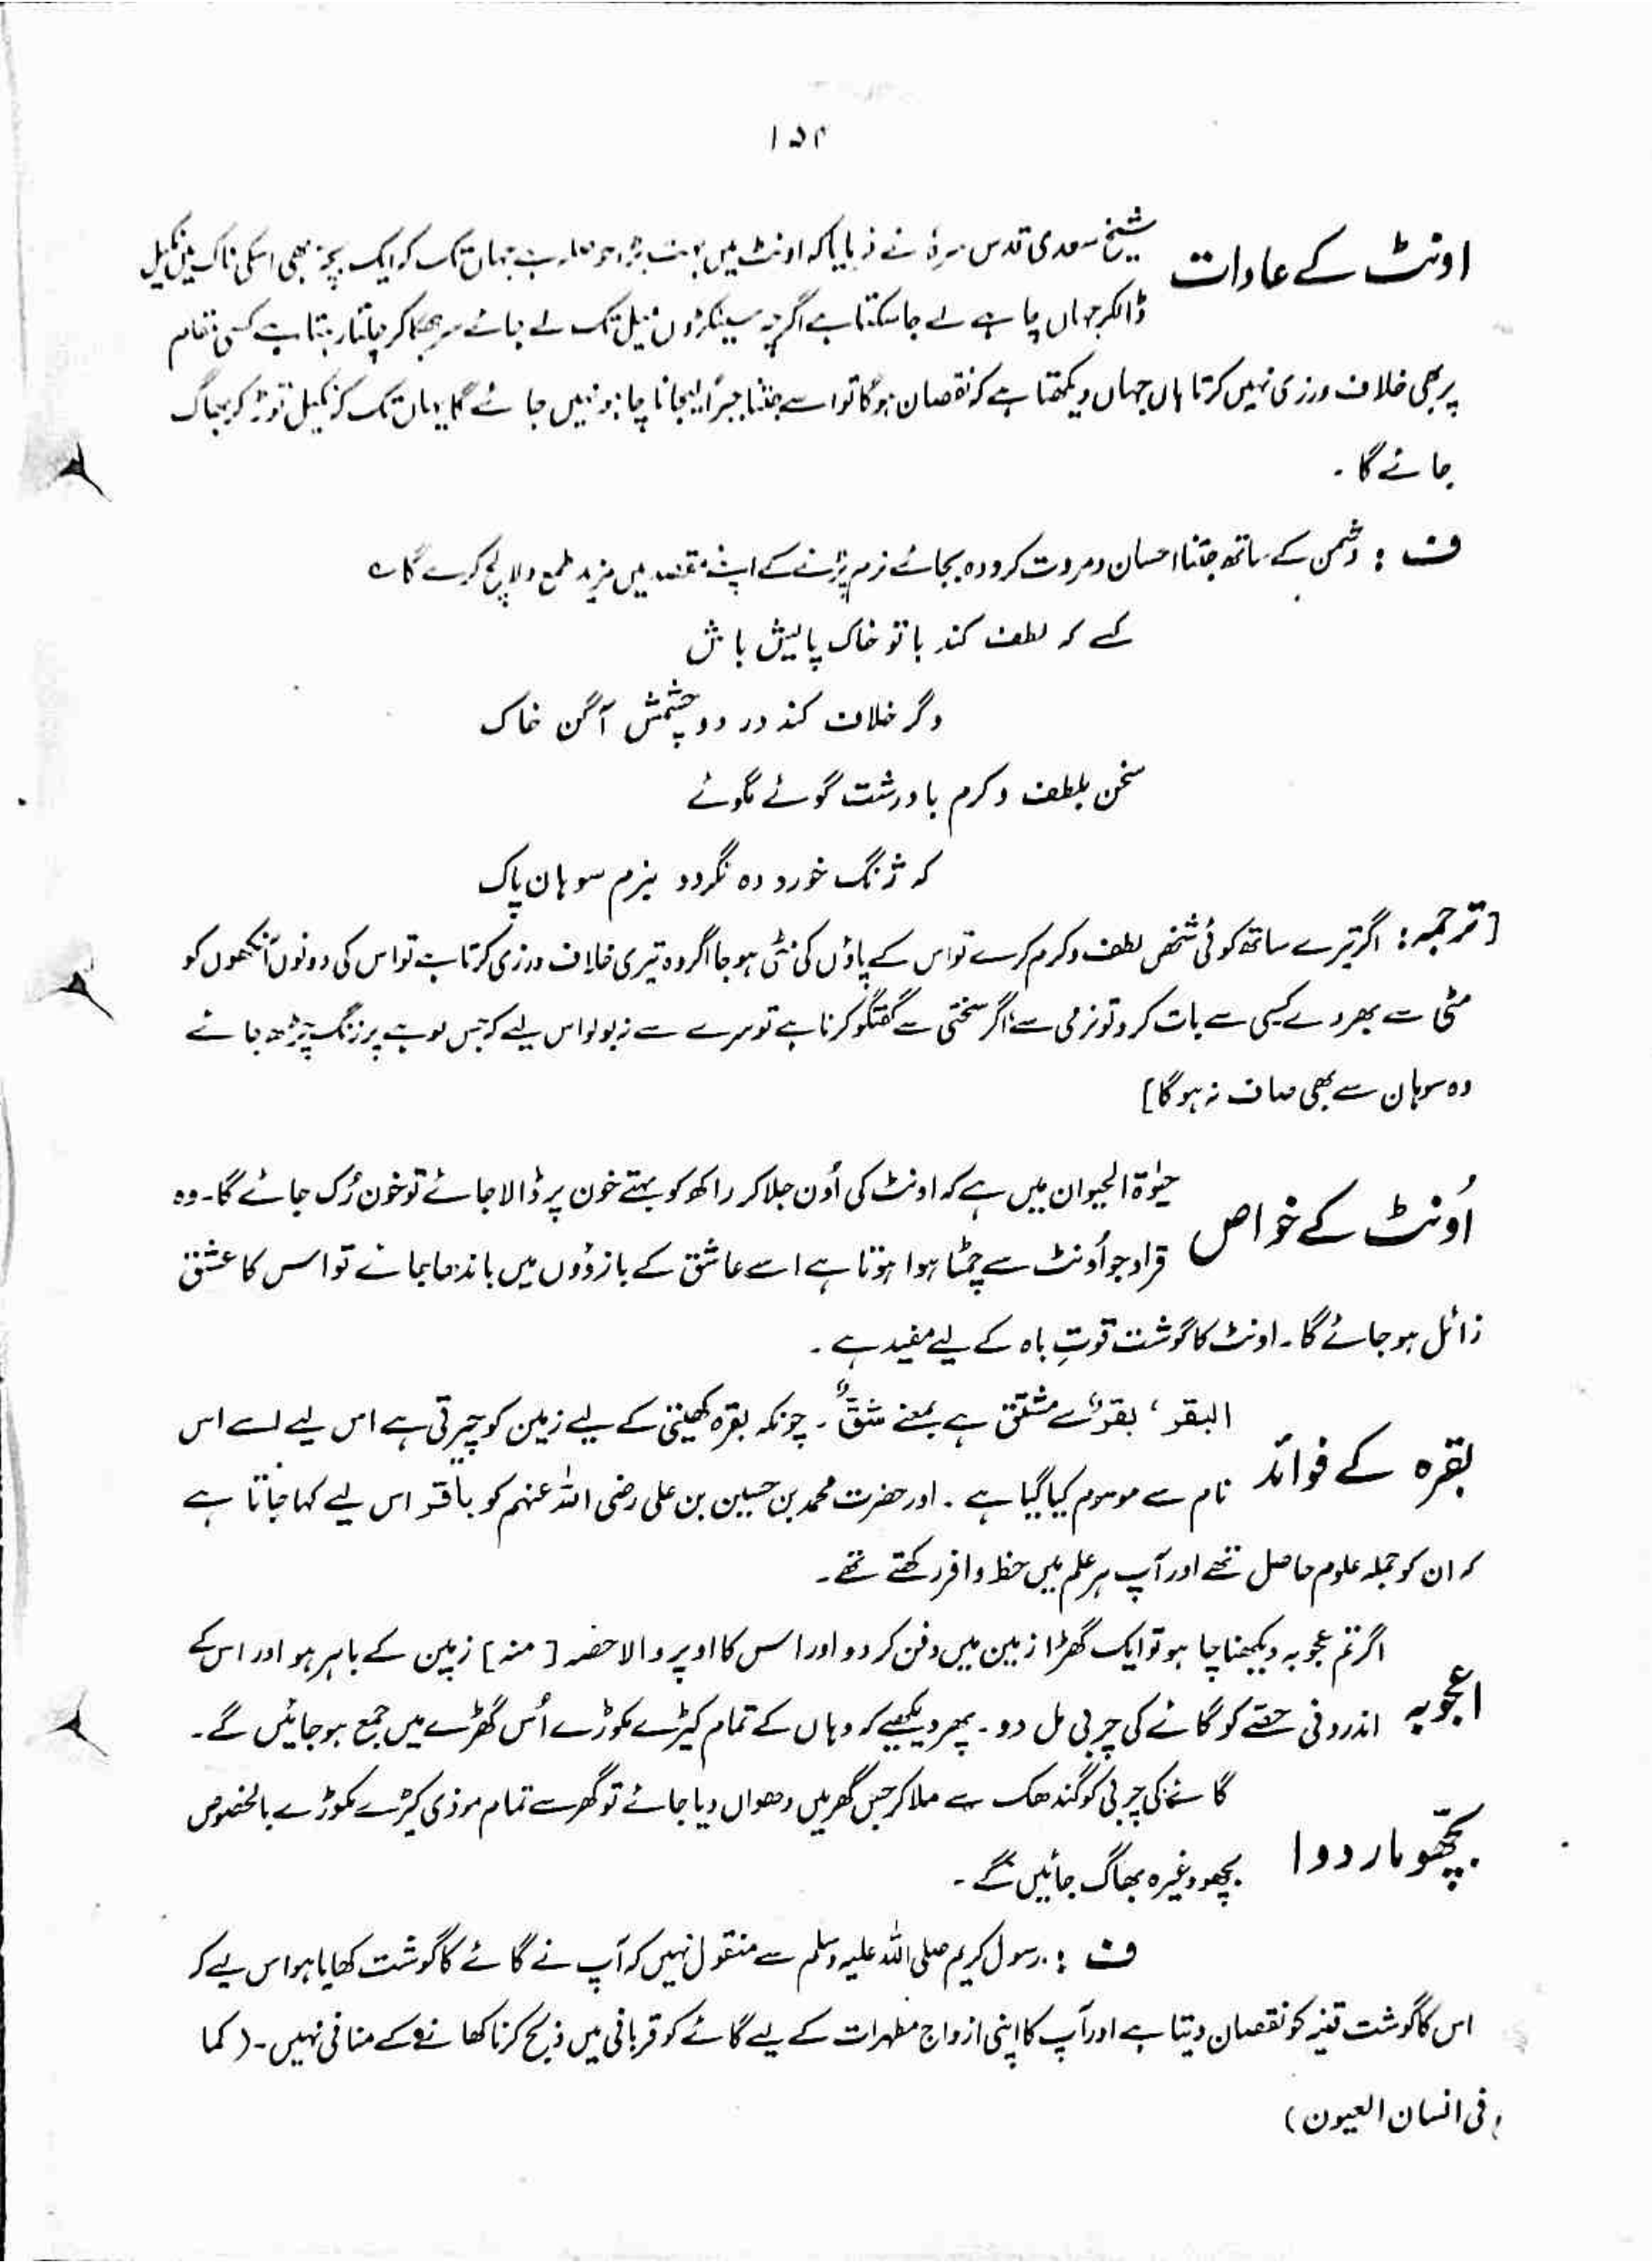 ۱۵۴
اونٹ کے عادات
شیخ سعدی قدس سرہٗ نے فرمایا کہ اونٹ میں بہت بڑا حوصلہ ہے جہاں تک کہ ایک بچہ بھی اسکی ناک میں نکیل
ڈالکر جہاں چاہے لے جا سکتا ہے اگرچہ سینکڑوں میل تک لے جائے سر جھکا کر چلتا رہتا ہے کسی مقام
پر بھی خلاف ورزی نہیں کرتا ہاں جہاں دیکھتا ہے کہ نقصان ہوگا تو اسے جتنا جبراً لیجانا چاہو نہیں جائے گا یہاں تک کہ نکیل توڑ کر بھاگ
جائے گا ۔
ف : دشمن کے ساتھ جتنا احسان و مروت کرو وہ بجائے نرم پڑنے کے اپنے مقصد میں مزید طمع و لالچ کرے گا ؎
کسے کہ لطف کند با تو خاک پایش باش
وگر خلاف کند در دو چشمش آگن خاک
سخن بلطف و کرم با درشت گوئے مگوئے
کہ ژنگ خوردہ نگردد بنرم سوہان پاک
[ترجمہ : اگر تیرے ساتھ کوئی شخص لطف و کرم کرے تو اس کے پاؤں کی مٹی ہو جا اگر وہ تیری خلاف ورزی کرتا ہے تو اس کی دونوں آنکھوں کو
مٹی سے بھر دے کسی سے بات کرو تو نرمی سے، اگر سختی سے گفتگو کرنا ہے تو سرے سے نہ بولو اس لیے کہ جس لوہے پر زنگ چڑھ جائے
وہ سوہان سے بھی صاف نہ ہوگا]
اُونٹ کے خواص
حیٰوۃ الحیوان میں ہے کہ اونٹ کی اُون جلا کر راکھ کو بہتے خون پر ڈالا جائے تو خون رُک جائے گا۔ وہ
قراد جو اُونٹ سے چمٹا ہوا ہوتا ہے اسے عاشق کے بازوؤں میں باندھا جائے تو اس کا عشق
زائل ہو جائے گا۔ اونٹ کا گوشت قوتِ باہ کے لیے مفید ہے ۔
بقرہ کے فوائد
البقر ، بقرٌ سے مشتق ہے بمعنے شقٌّ ۔ چونکہ بقرہ کھیتی کے لیے زمین کو چیرتی ہے اس لیے اسے اس
نام سے موسوم کیا گیا ہے ۔ اور حضرت محمد بن حسین بن علی رضی اللہ عنہم کو باقر اس لیے کہا جاتا ہے
کہ ان کو جملہ علوم حاصل تھے اور آپ ہر علم میں حظ وافر رکھتے تھے ۔
اعجوبہ
اگر تم عجوبہ دیکھنا چاہو تو ایک گھڑا زمین میں دفن کر دو اور اس کا اوپر والا حصہ [منہ] زمین کے باہر ہو اور اس کے
اندرونی حصّے کو گائے کی چربی مل دو ۔ پھر دیکھیے کہ وہاں کے تمام کیڑے مکوڑے اُس گھڑے میں جمع ہو جائیں گے ۔
بچھّو مار دوا
گائے کی چربی کو گندھک سے ملا کر جس گھر میں دھواں دیا جائے تو گھر سے تمام موذی کیڑے مکوڑے بالخصوص
بچھو وغیرہ بھاگ جائیں گے ۔
ف : رسول کریم صلی اللہ علیہ وسلم سے منقول نہیں کہ آپ نے گائے کا گوشت کھایا ہو اس لیے کہ
اس کا گوشت نقصان دیتا ہے اور آپ کا اپنی ازواج مطہرات کے لیے گائے کو قربانی میں ذبح کرنا کھانے کے منافی نہیں ۔ (کما
فی انسان العیون)